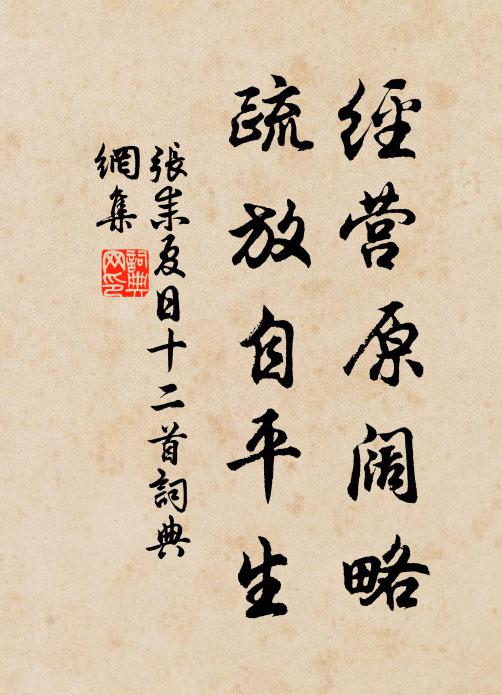 經营原阔略
疏放自平生
張耒夏日十二首詞典
網集
詞典
网印